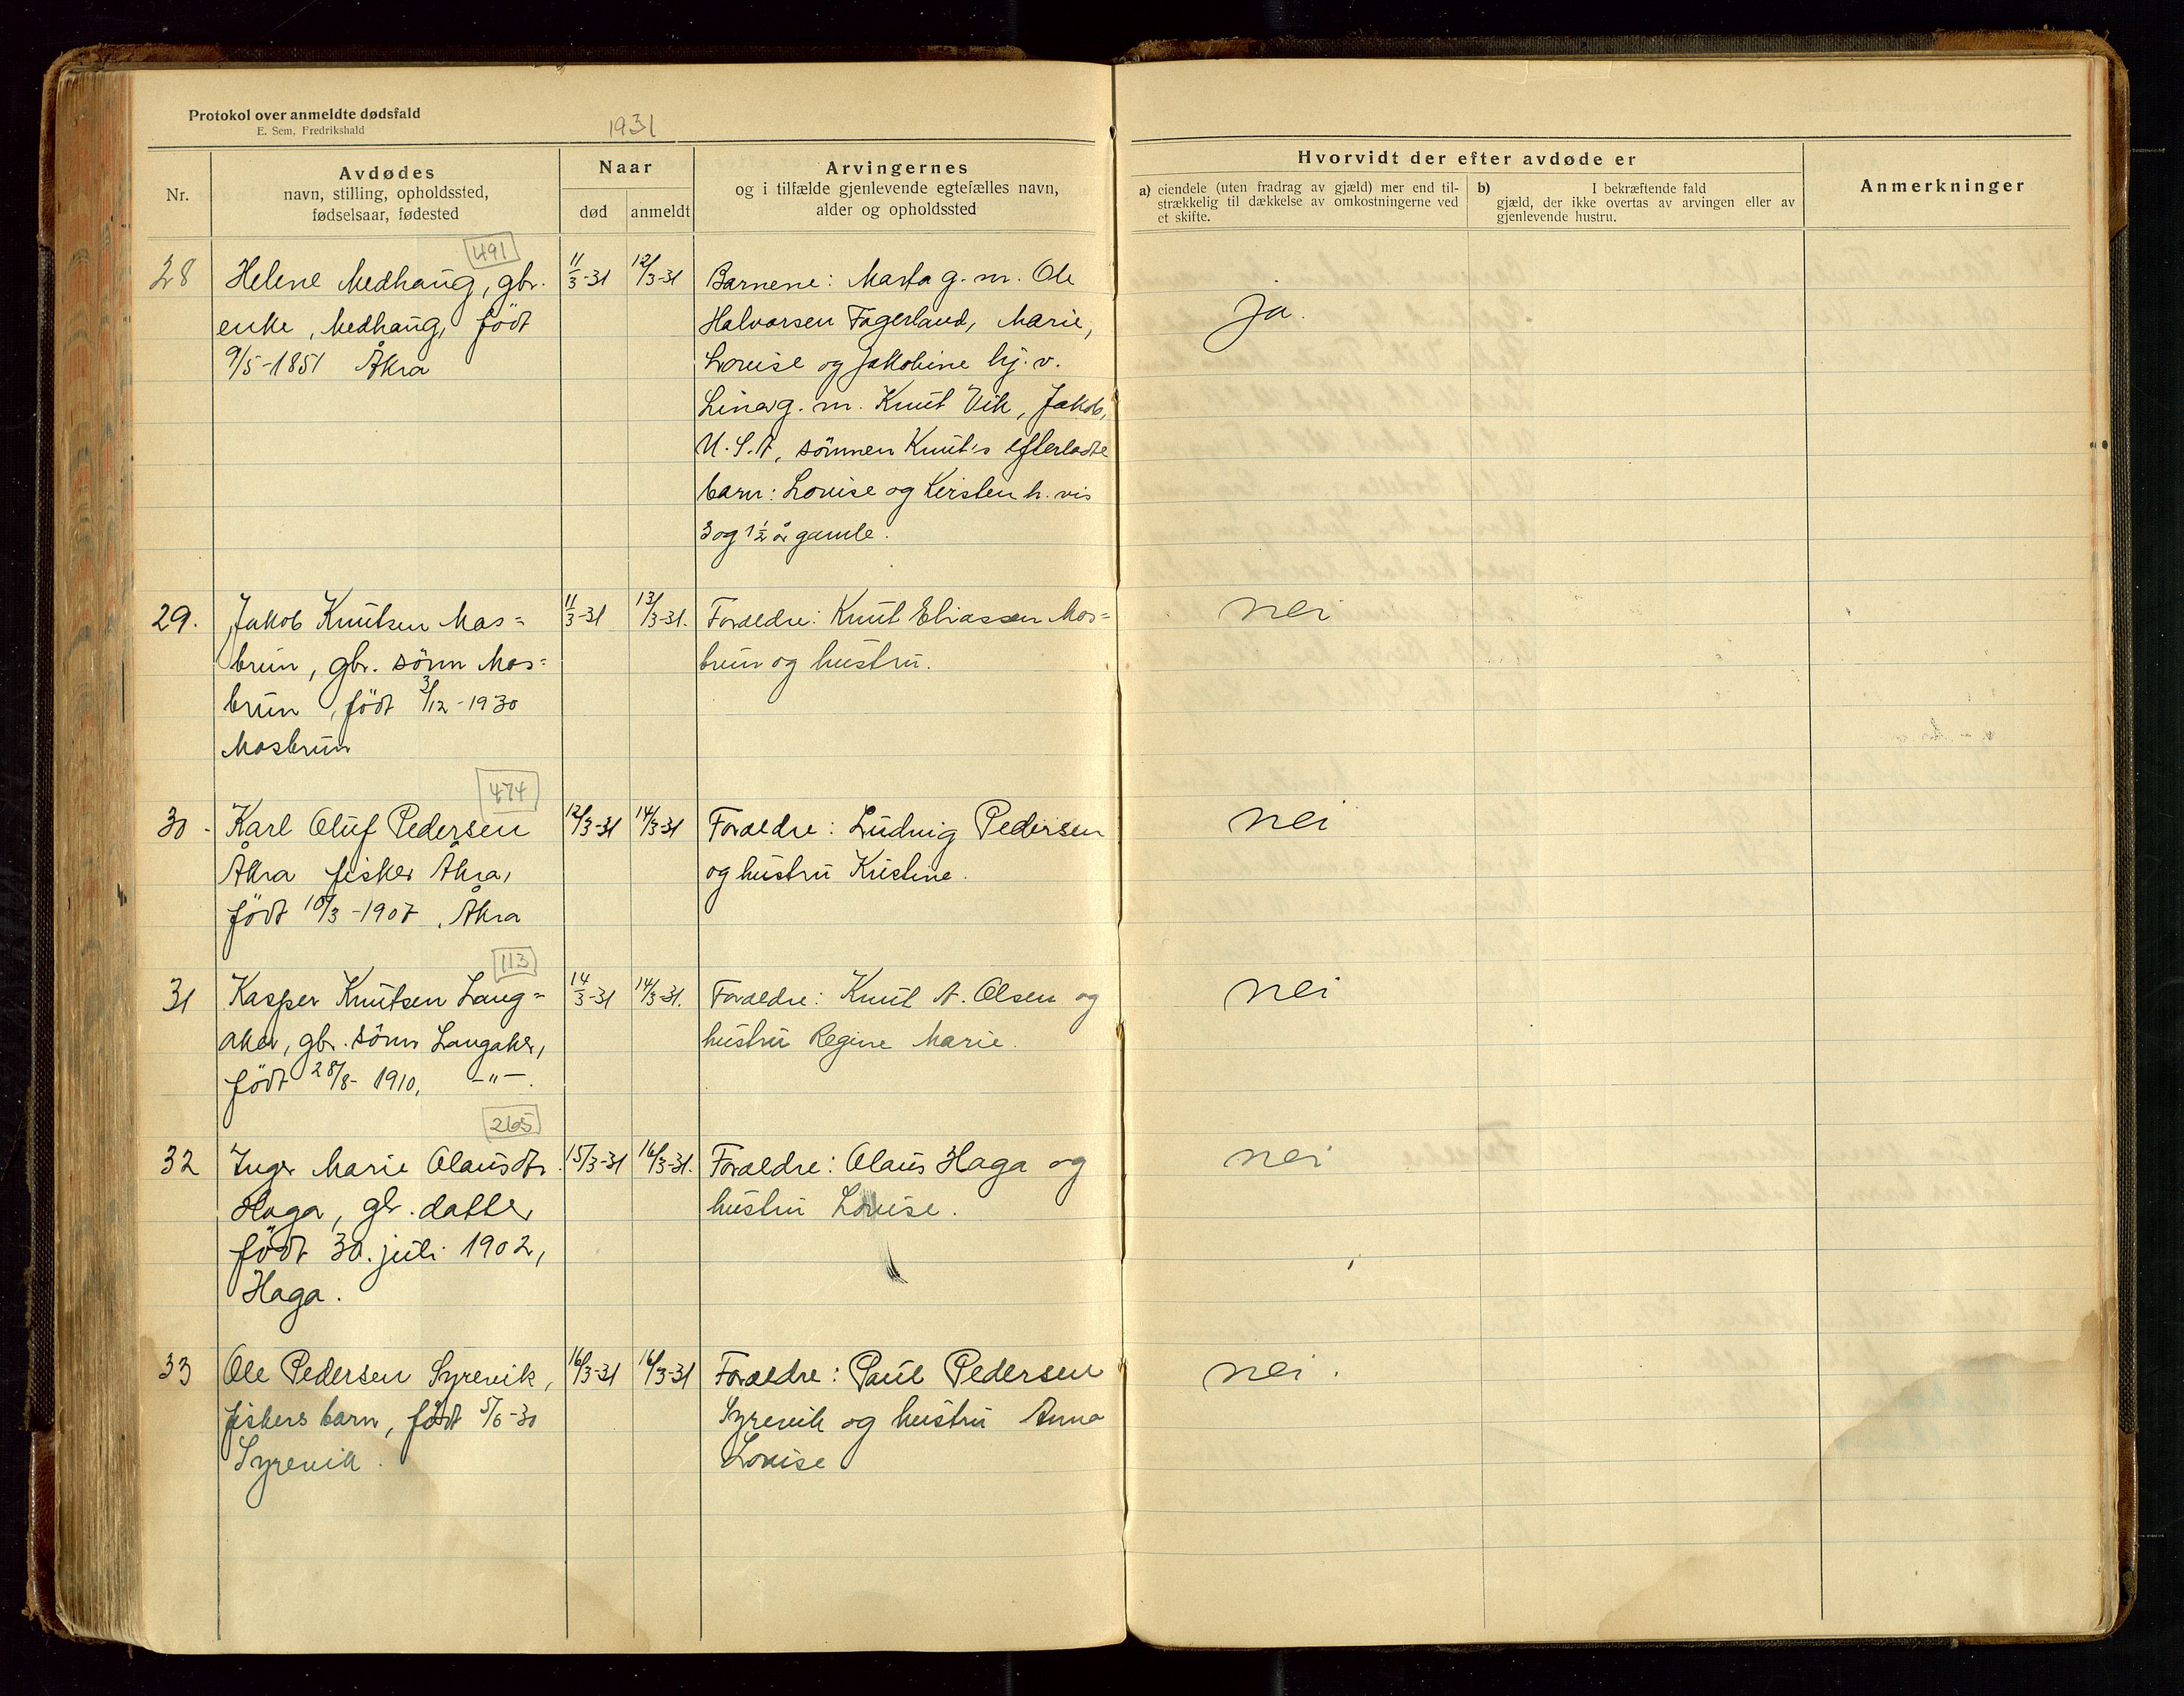 Protokol over anmeldte dødsfald
E. Sem, Fredrikshald
1931
Nr.
Avdødes
navn, stilling, opholdssted,
fødselsaar, fødested
Naar
død
anmeldt
Arvingernes
og i tilfælde gjenlevende egtefælles navn,
alder og opholdssted
Hvorvidt der efter avdøde er
a) eiendele (uten fradrag av gjæld) mer end til-
strækkelig til dækkelse av omkostningerne ved
et skifte.
b) I bekræftende fald
gjæld, der ikke overtas av arvingen eller av
gjenlevende hustru.
Anmerkninger
491
28 Helene Medhaug, gbr. 11/3-31 12/3-31 Barnene: Marta g. m. Ole
enke, Medhaug, född Halvorsen Fagerland, Marie,
ja.
9/5-1851 Åkra Louise og Jakobine hj. v.
Lina g. m. Knut Vik, Jakob,
U.S.A, sönnen Knut's efterladte
barn: Louise og Kirsten h. vis
3 og 1½ år gamle.
29. Jakob Knutsen Mos= 11/3-31 13/3-31. Foraeldre: Knut Eliassen Mos= nei
brun, gbr. sönn Mos= brun og hustru.
brun, född 3/12-1930
Mosbrun
474
30. Karl Oluf Pedersen 12/3-31 14/3-31 Foraeldre: Ludvig Pedersen nei
Åkra fisker Åkra, og hustru Kristine.
född 10/3-1907, Åkra
113
31 Kasper Knutsen Lang= 14/3-31 14/3-31. Foraeldre: Knut A. Olsen og nei
aker, gbr. sönn Langaker, hustru Regine Marie.
född 28/8-1910, -"-.
265
32 Inger Marie Olausdtr. 15/3-31 16/3-31. Foraeldre: Olaus Haga og nei
Haga, gbr. datter hustru Louise.
född 30. juli 1902,
Haga.
33 Ole Pedersen Syrevik, 16/3-31 16/3-31 Foraeldre: Paul Pedersen nei.
fiskers barn, född 5/6-30 Syrevik og hustru Anna
Syrevik. Louise